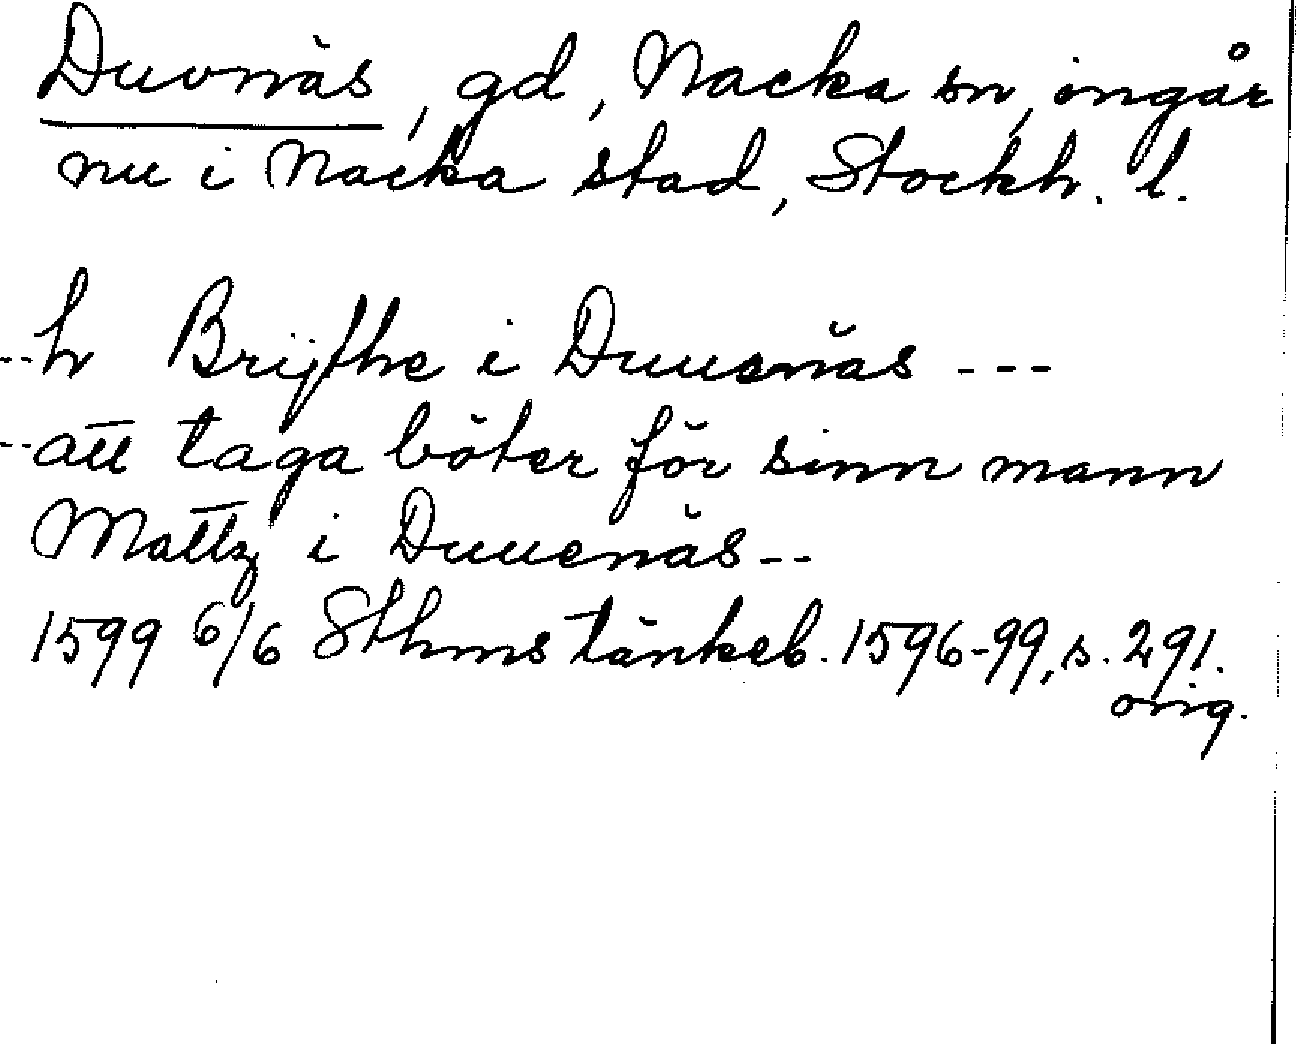 Duvnäs, gd, Nacka sn, ingår
nu i Nacka stad, Stockh. l.
--h Brijthe i Duuenäs ---
--att taga böter för sinn mann
Mattz i Duuenäs--
1599 6/6 Sthms tänkeb. 1596-99, s. 291.
orig.